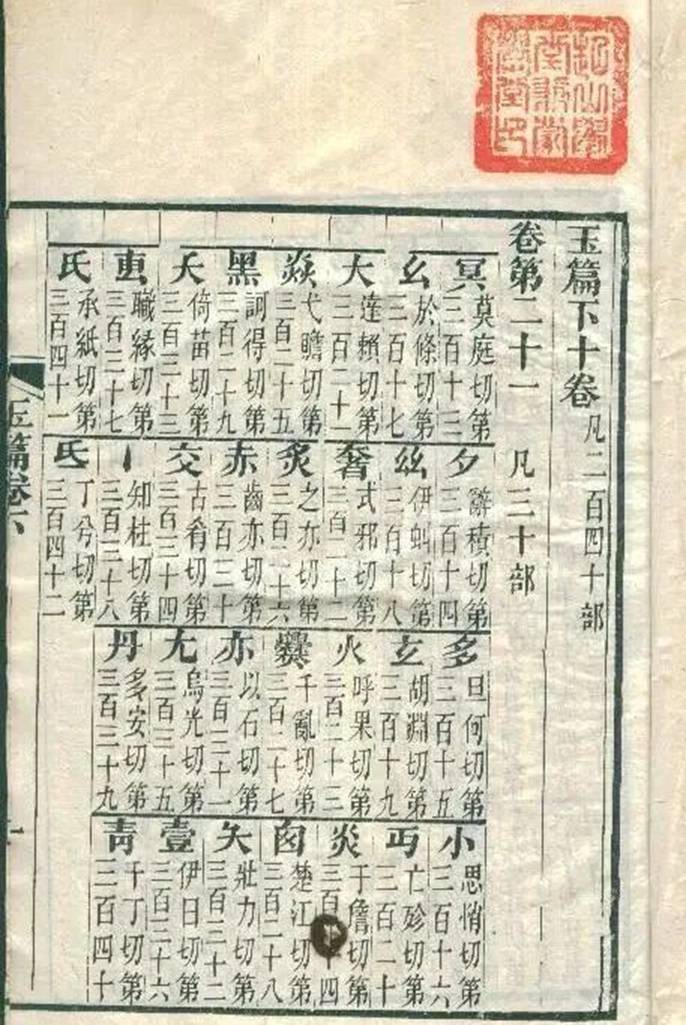 玉篇下十卷 凡二百四十部
卷第二十一 凡三十部
冥 莫庭切第三百十三
夕 辭積切第三百十四
多 旦何切第三百十五
小 思悄切第三百十六
幺 於條切第三百十七
𢆶 伊虯切第三百十八
玄 胡淵切第三百十九
丏 亡殄切第三百二十
大 達賴切第三百二十一
奢 式邪切第三百二十二
火 呼果切第三百二十三
炎 于詹切第三百十四
焱 弋贍切第三百二十五
炙 之亦切第三百二十六
爨 千亂切第三百二十七
囱 楚江切第三百二十八
黑 訶得切第三百二十九
赤 齒亦切第三百三十
亦 以石切第三百三十一
夨 壯力切第三百三十二
夭 倚苗切第三百三十三
交 古肴切第三百三十四
尢 烏光切第三百三十五
壹 伊日切第三百三十六
叀 職緣切第三百三十七
丨 知柱切第三百三十八
丹 多安切第三百三十九
靑 千丁切第三百四十
氏 承紙切第三百四十一
氐 丁兮切第三百四十二
玉篇卷六